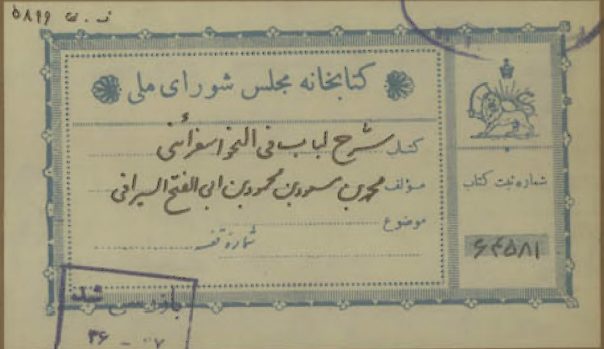 ف. ت ۵۸۹۹
کتابخانه مجلس شورای ملی
کتاب شرح لباب فی النحو اسفرائنی
مؤلف محمد بن مسعود بن محمود بن ابی الفتح السیرافی
موضوع
شماره قفسه
شماره ثبت کتاب
۶۴۵۸۱
شد
۳۶ - ۷